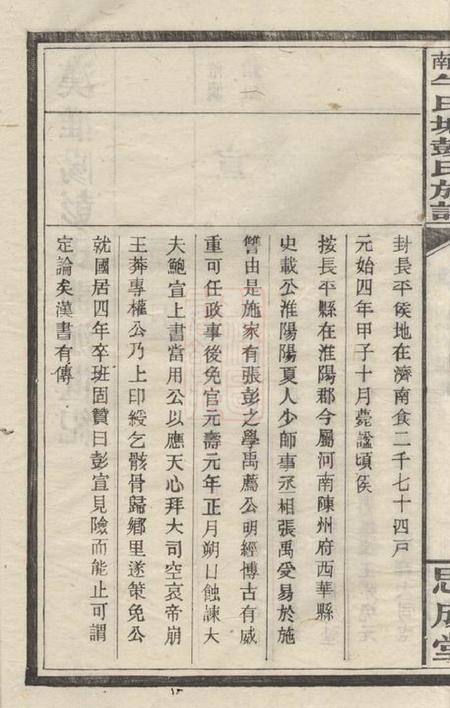 南
氏
彭氏族譜
封長平侯地在濟南食二千七十四戸
元始四年甲子十月薨諡頃侯
按長平縣在淮陽郡今屬河南陳州府西華縣
史載公淮陽陽夏人少師事丞相張禹受易於施
讐由是施家有張彭之學禹薦公明經博古有威
重可任政事後免官元壽元年正月朔日蝕諫大
夫鮑宣上書當用公以應天心拜大司空哀帝崩
王莽專權公乃上印綬乞骸骨歸鄉里遂策免公
就國居四年卒班固贊曰彭宣見險而能止可謂
定論矣漢書有傳